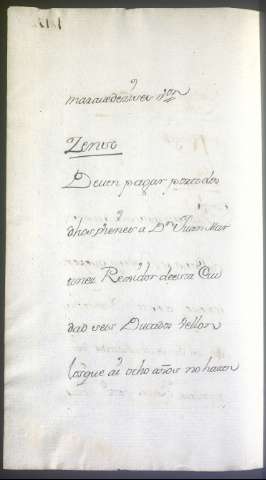 maravedises von
Zenso
Deven pagar todos
dhos vienes a Dn Juan Mar
tinez Rexidor desta Ciu
dad seis Ducados Vellon
los que a ocho años no hazen